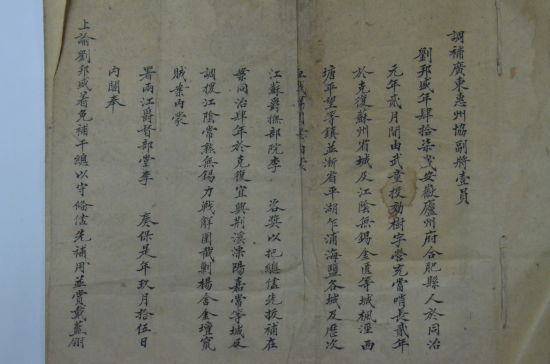 調補廣東惠州協副將壹員
劉邦盛年肆拾柒歲安徽廬州府合肥縣人於同治
元年貳月間由武童投効樹字營充當哨長貳年
於克復蘇州省城及江陰無錫金匱等城楓涇西
塘平望等鎮並浙省平湖乍浦海鹽各城及歷次
江蘇爵撫部院李 咨獎以把總儘先拔補在
案同治肆年於克復宜興荊溪溧陽嘉常等城及
調援江陰常熟無錫力戰解圍截剿楊舍金壇竄
賊案內蒙
署兩江爵督部堂李 彙保是年玖月拾伍日
內閣奉
上諭劉邦盛著免補千總以守備儘先補用並賞戴藍翎